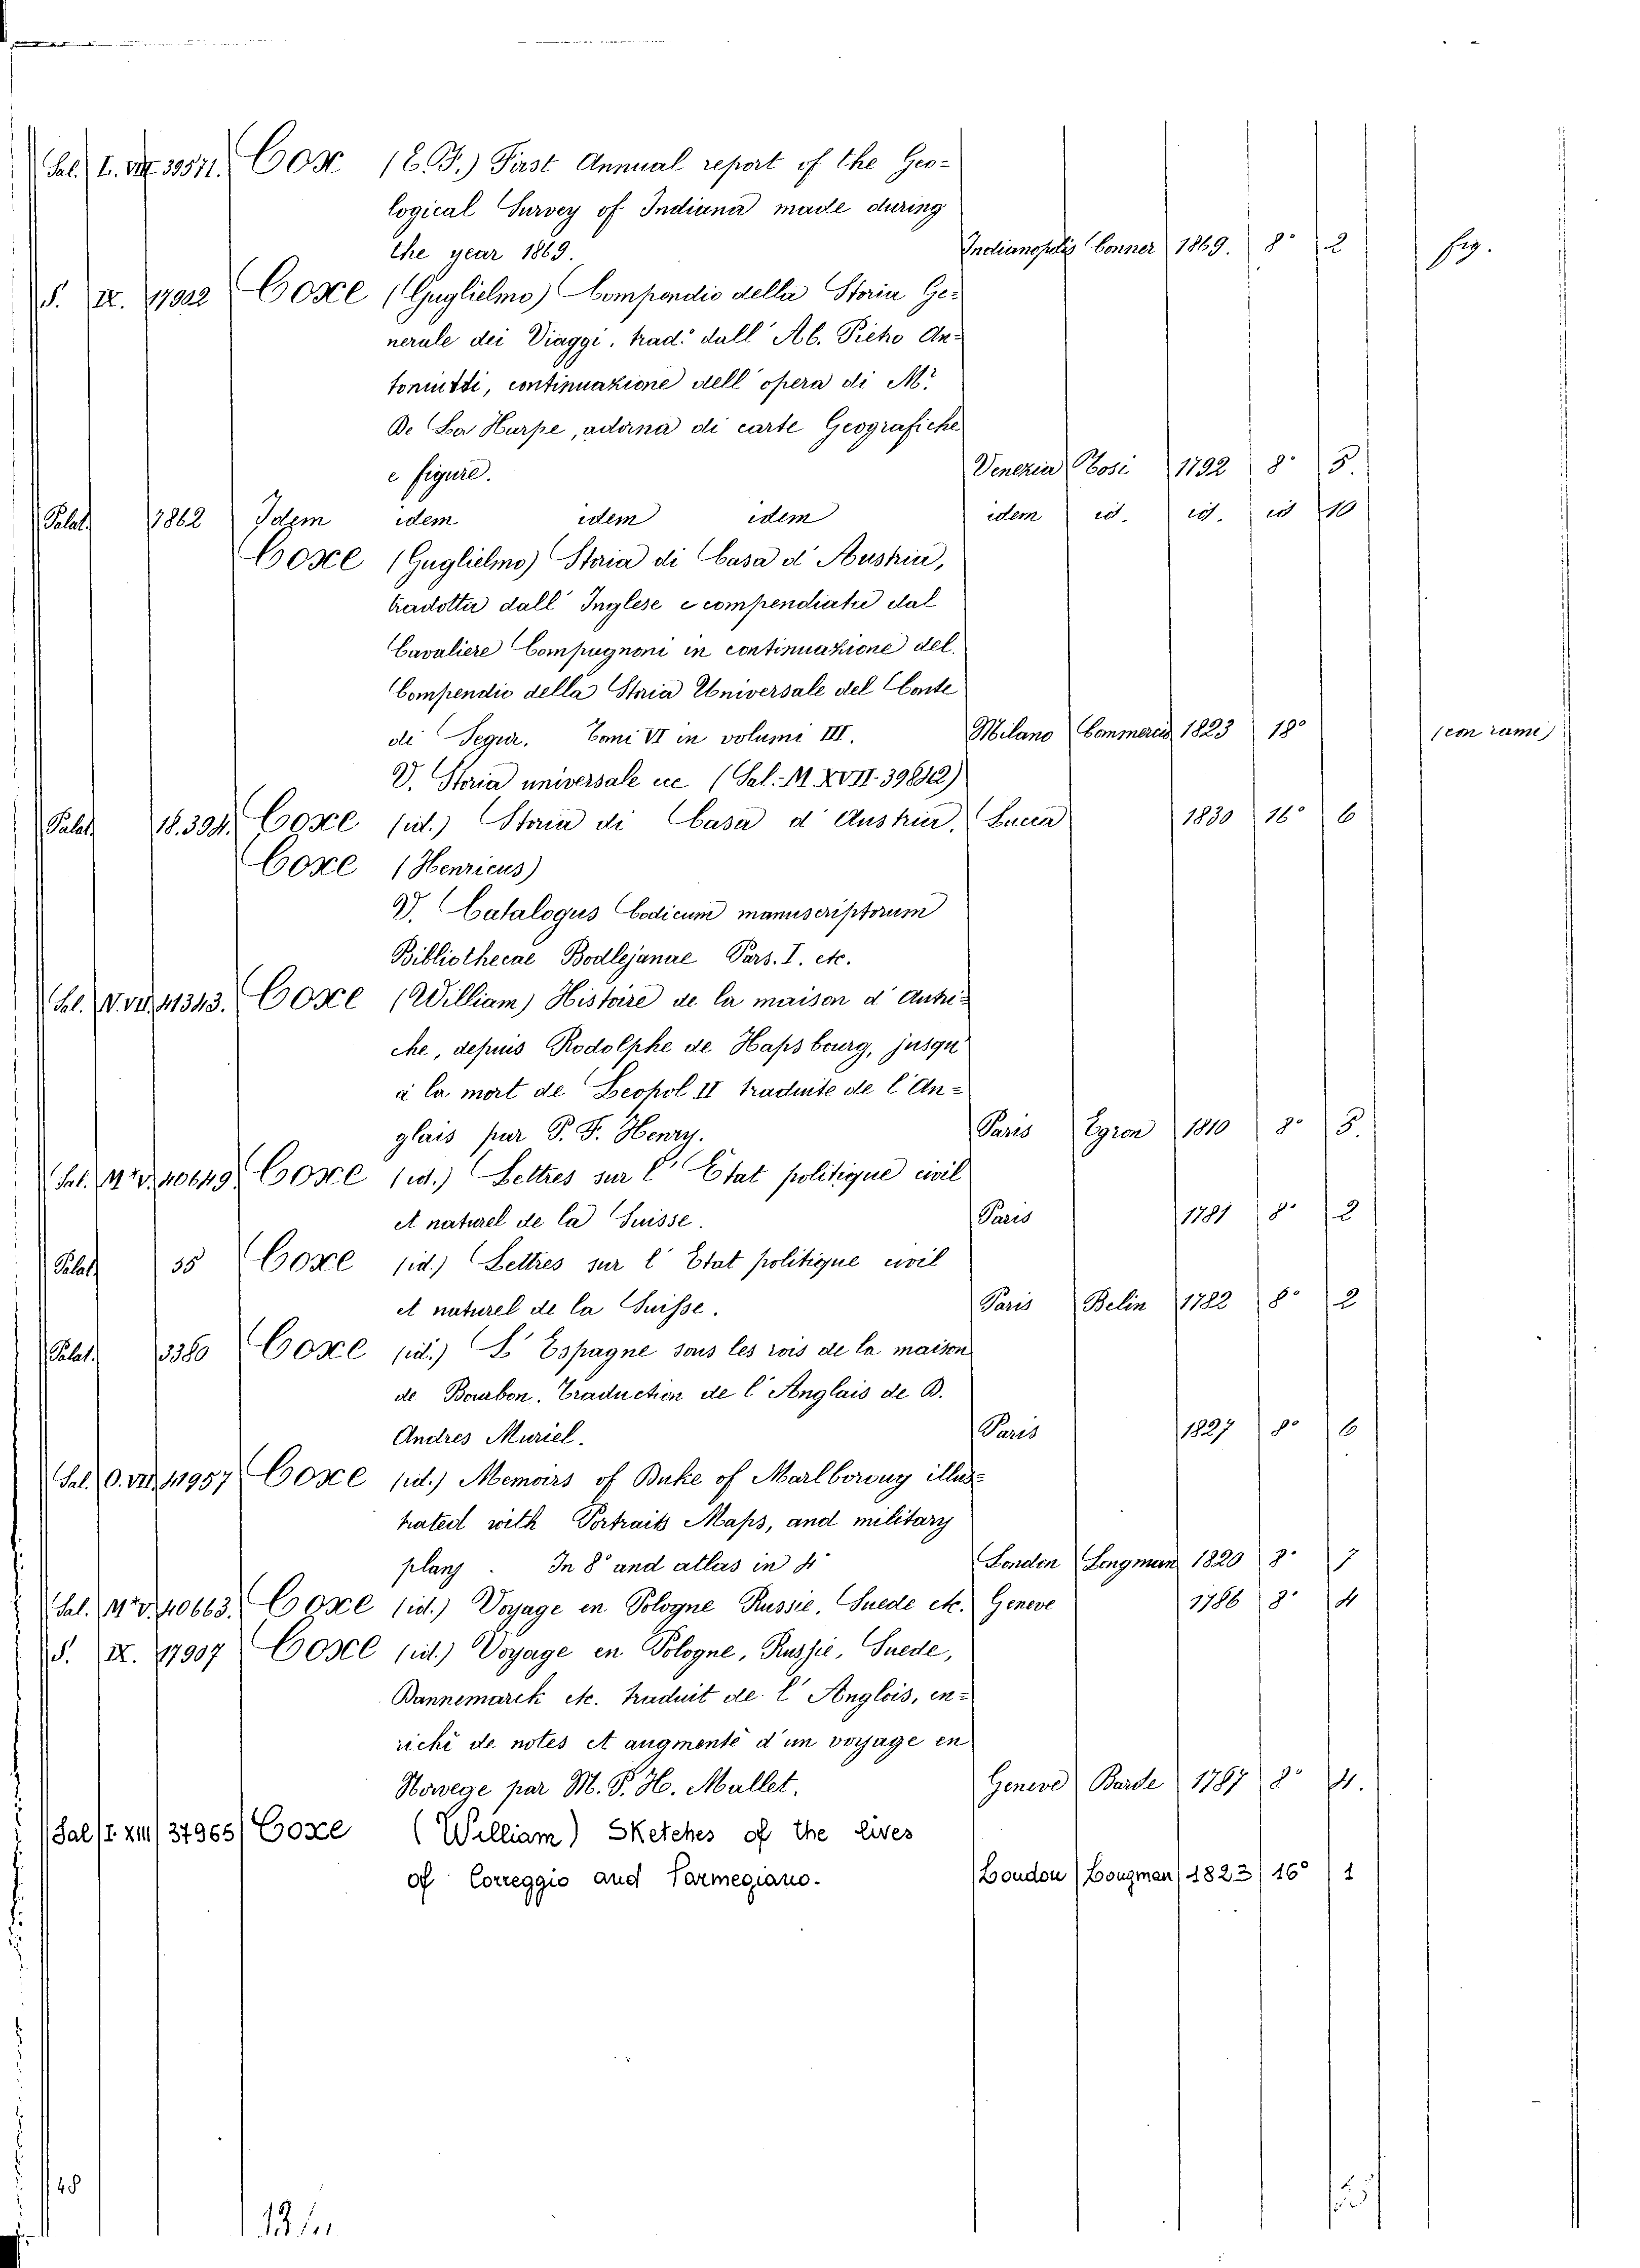 Sal. I. VII. 39571. Cox (E. T.) First Annual report of the Geo=
logical Survey of Indiana made during
the year 1869. Indianopolis Conner 1869. 8° 2 fig.
S. IX. 17922 Coxe (Guglielmo) Compendio della Storia Ge=
nerale dei Viaggi, trad. dall' Ab. Pietro An=
toniutti, continuazione dell' opera di Mr
De La Harpe, adorna di carte Geografiche
e figure. Venezia Fosi 1792 8° 5.
Palat. 1862 Idem idem idem idem idem id. id. id 10
Coxe (Guglielmo) Storia di Casa d' Austria,
tradotta dall' Inglese e compendiata dal
Cavaliere Compagnoni in continuazione del
Compendio della Storia Universale del Conte
di Segur. Tomi VI in volumi III. Milano Commercio 1823 18° (con rame)
V. Storia universale ecc (Sal. M. XVII. 39842)
Palat. 18.394. Coxe (id.) Storia di Casa d' Austria. Lucca 1830 16° 6
Coxe (Henricus)
V. Catalogus Codicum manuscriptorum
Bibliothecae Bodlejanae Pars. I. etc.
Sal. N. VII. 41343. Coxe (William) Histoire de la maison d' Autri=
che, depuis Rodolphe de Hapsbourg, jusqu'
à la mort de Leopol II traduite de l' An=
glais par P. F. Henry. Paris Egron 1810 8° 5.
Sal. M. V. 40649 Coxe (id.) Lettres sur l' Etat politique civil
et naturel de la Suisse. Paris 1781 8° 2
Palat. 35 Coxe (id.) Lettres sur l' Etat politique civil
et naturel de la Suisse. Paris Belin 1782 8° 2
Palat. 3380 Coxe (id.) L' Espagne sous les rois de la maison
de Bourbon. Traduction de l' Anglais de D.
Andres Muriel. Paris 1827 8° 6
Sal. O. VII. 41957 Coxe (id.) Memoirs of Duke of Marlboroug illus=
trated with Portraits Maps, and military
plans. In 8° and atlas in 4° London Longman 1820 8° 7
Sal. M. V. 40663. Coxe (id.) Voyage en Pologne Russie, Suede etc. Geneve 1786 8° 4
S. IX. 17907 Coxe (id.) Voyage en Pologne, Russie, Suede,
Dannemarck etc. traduit de l' Anglois, en=
richi de notes et augmenté d' un voyage en
Norwege par M. P. H. Mallet. Geneve Barde 1787 8° 4.
Sal I. XIII 37965 Coxe (William) Sketches of the lives
of Correggio and Parmegiano. London Longman 1823 16° 1
48